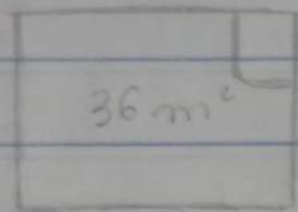 36 m²